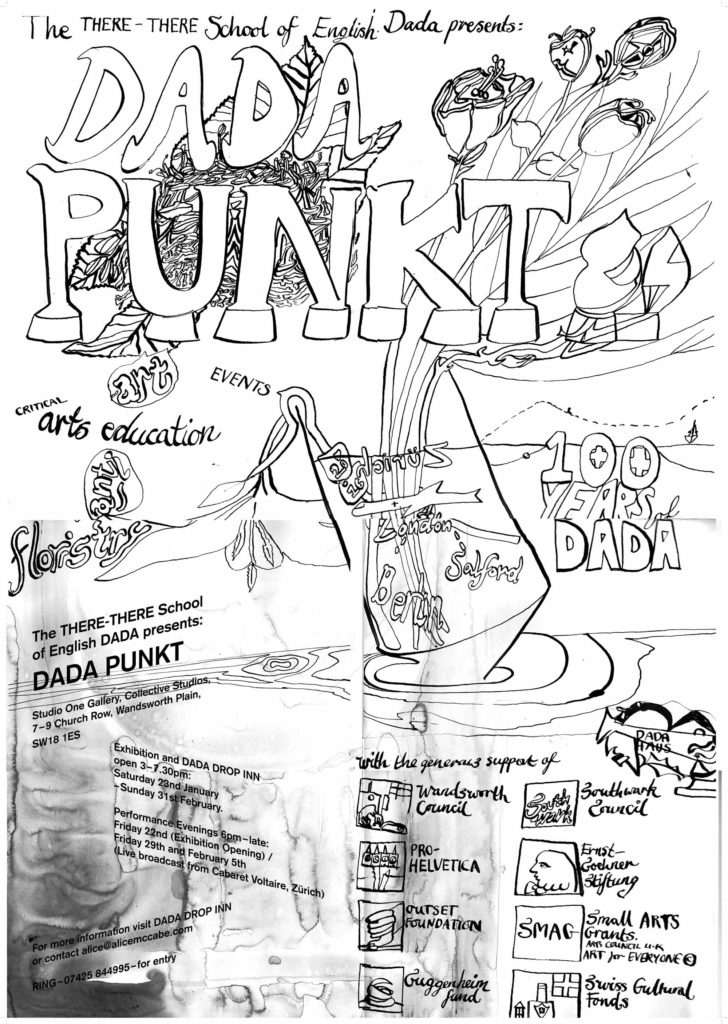 The THERE-THERE School of English Dada presents:
DADA
PUNKT
art
EVENTS
CRITICAL
arts education
floristry
London
Salford
Berlin
100
YEARS of
DADA
The THERE-THERE School
of English DADA presents:
DADA PUNKT
Studio One Gallery, Collective Studios,
7–9 Church Row, Wandsworth Plain,
SW18 1ES
Exhibition and DADA DROP INN
open 3–7.30pm:
Saturday 23nd January
–Sunday 31st February.
Performance Evenings 6pm–late:
Friday 22nd (Exhibition Opening) /
Friday 29th and February 5th
(Live broadcast from Cabaret Voltaire, Zürich)
For more information visit DADA DROP INN
or contact alice@alicemccabe.com
RING–07425 844995–for entry
DADA
HAUS
with the generous support of
Wandsworth
Council
South
wark
Southwark
Council
PRO-
HELVETICA
Ernst-
Göhner
Stiftung
OUTSET
FOUNDATION
SMAG
Small ARTS
Grants.
ARTS COUNCIL U.K
ART for EVERYONE
Guggenheim
fund
Swiss Cultural
Fonds